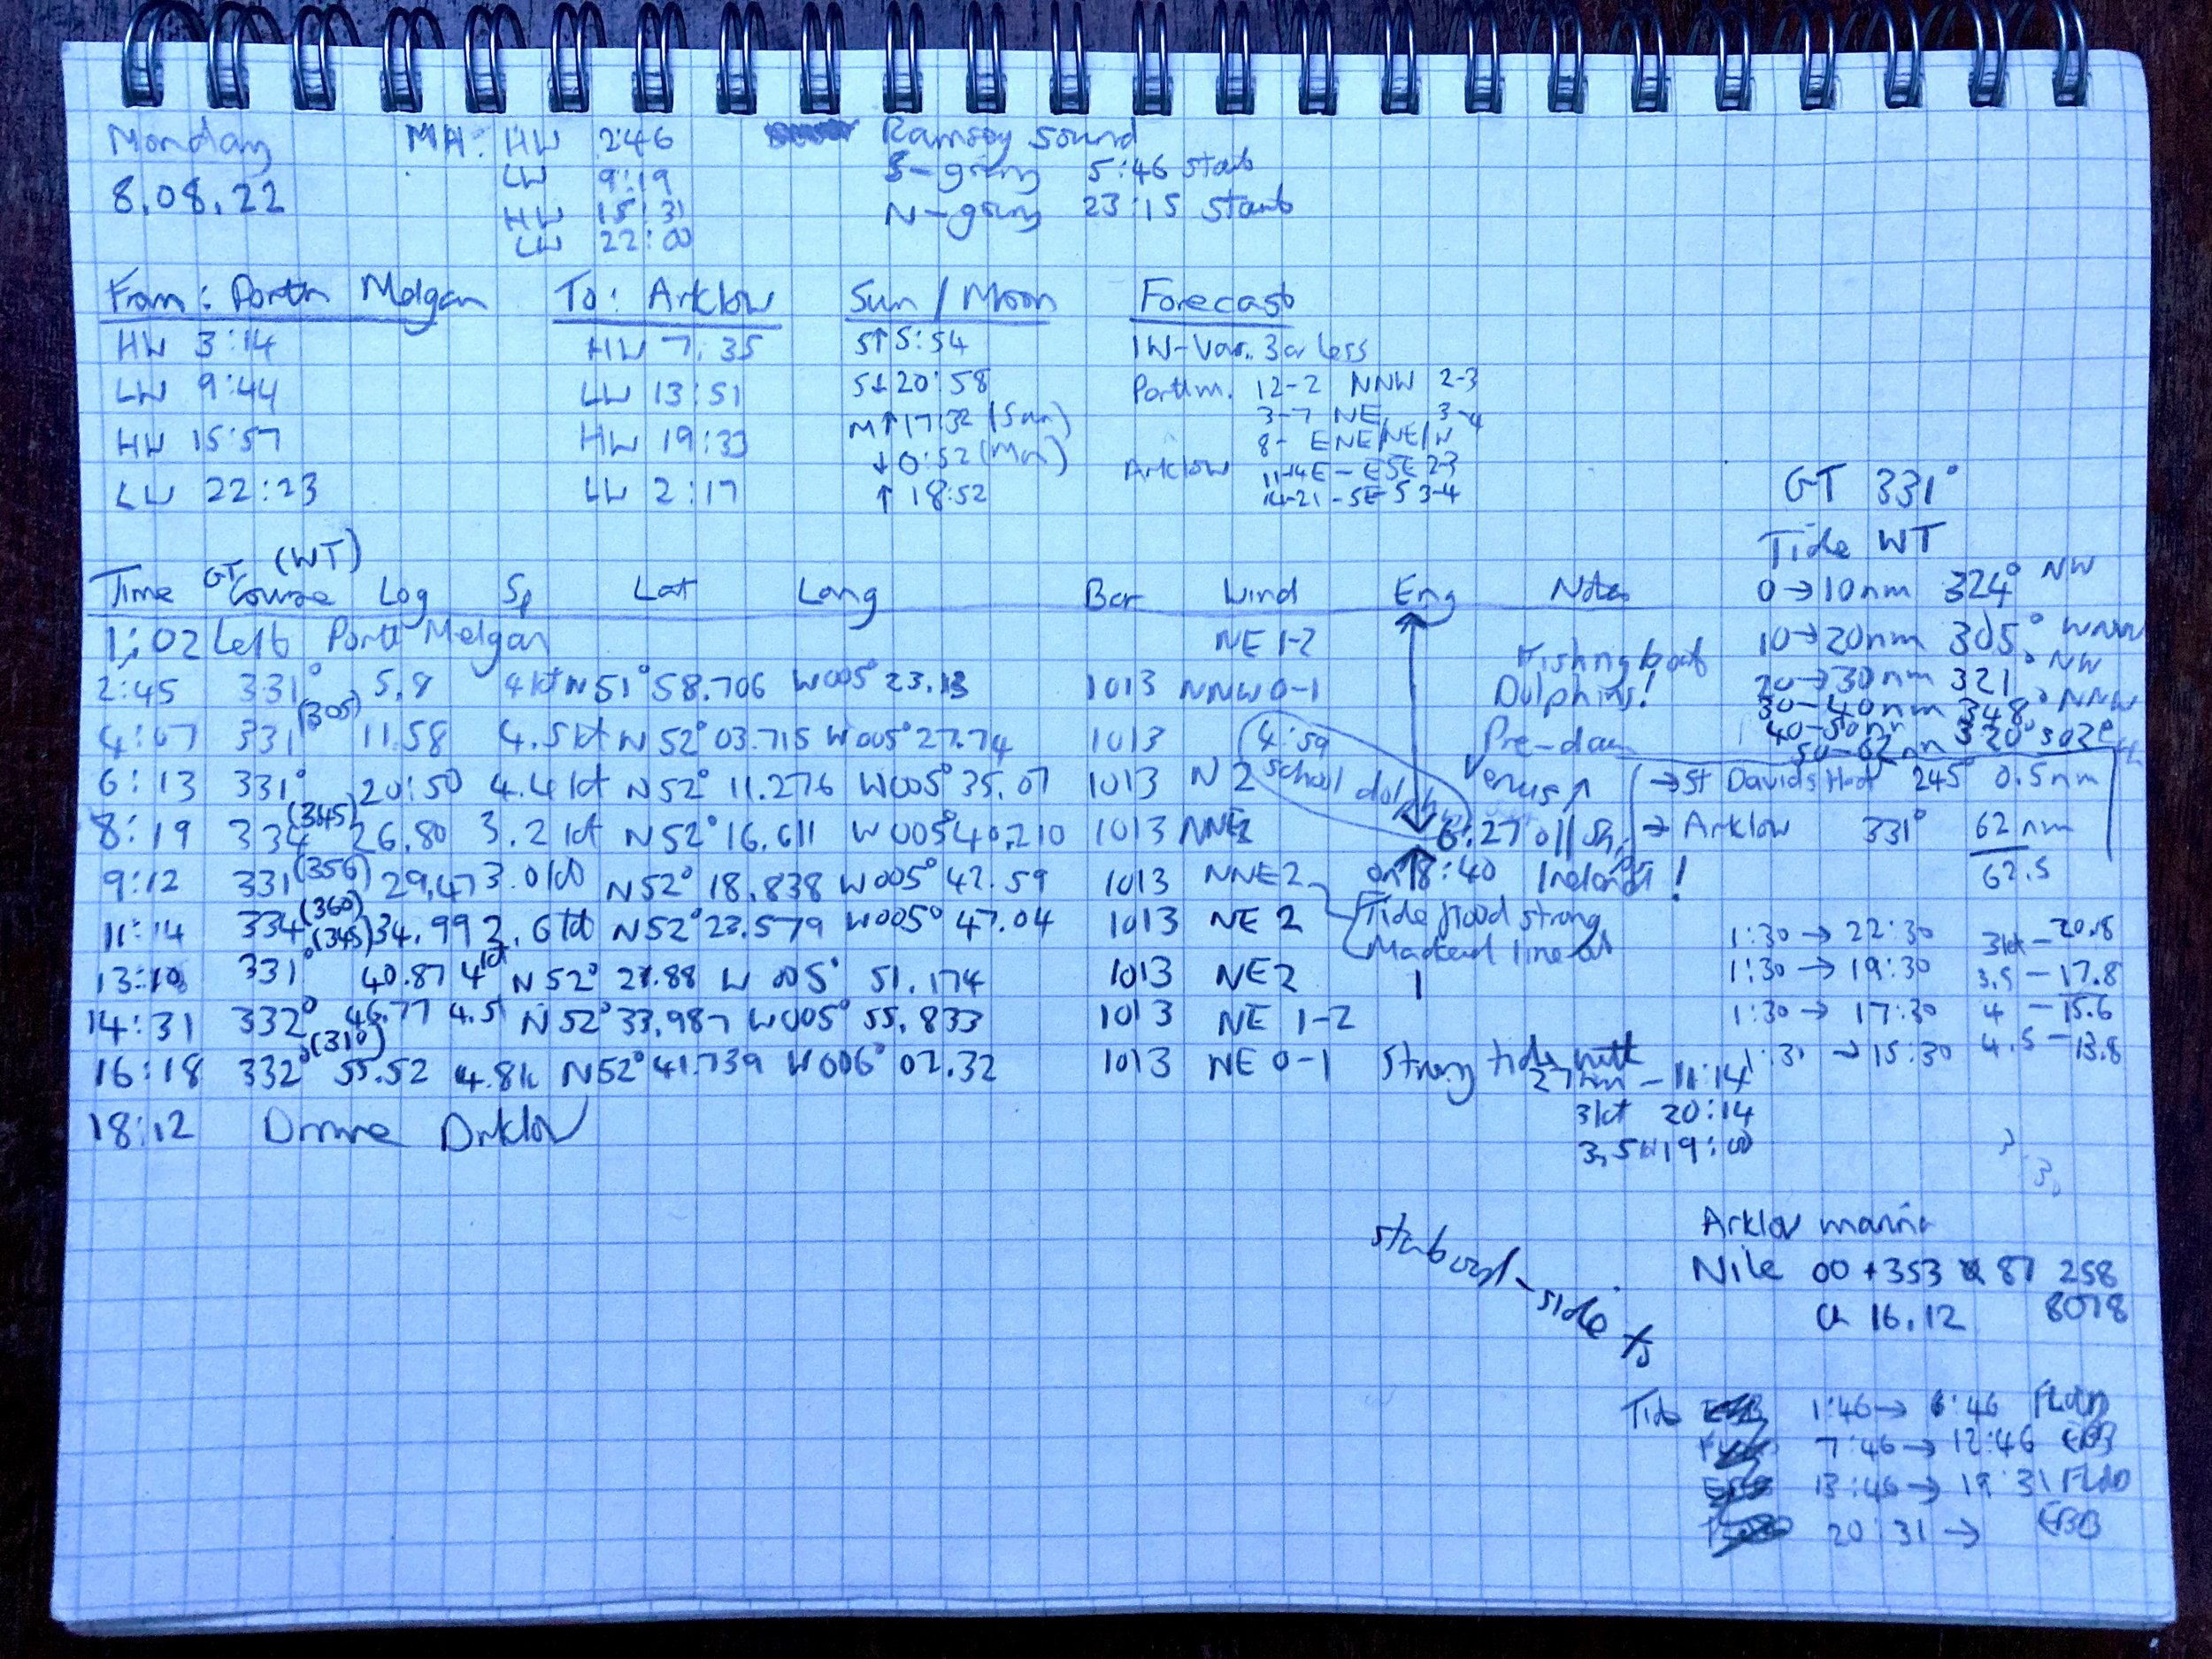 Monday
8.08.22
MH: HW 2:46
LW 9:19
HW 15:31
LW 22:00
Ramsey Sound
S-going 5:46 starts
N-going 23:15 starts
From: Porth Melgan
HW 3:14
LW 9:44
HW 15:57
LW 22:23
To: Arklow
HW 7:35
LW 13:51
HW 19:33
LW 2:17
Sun / Moon
S↑ 5:54
S↓ 20:58
M↑ 17:32 (Sun)
↓ 0:52 (Mon)
↑ 18:52
Forecast
IW-Var. 3 or less
Porthm. 12-2 NNW 2-3
3-7 NE 3-4
8- ENE/NE/N
Arklow 11-14 E-ESE 2-3
14-21-SE-S 3-4
GT 331°
Tide WT
0→10nm 324° NW
10→20nm 305° WNW
20→30nm 321° NW
30-40nm 348° NNW
40-50nm 320°
50-62nm 302°
Time GT Course (WT) Log Sp Lat Long Bar Wind Eng Notes
1:02 Left Porth Melgan NE 1-2
2:45 331° 5.8 4kt N51°58.706 W005°23.13 1013 NNW 0-1 Fishing boat Dolphins!
4:07 331° (305) 11.58 4.5kt N52°03.715 W005°27.74 1013 Pre-dawn
4:59 school dolphins
Venus ↑
6:13 331° 20:50 4.4kt N52°11.276 W005°35.07 1013 N2
→ St Davids Head 245 0.5nm
8:19 334 (345) 26.80 3.2kt N52°16.611 W005°40.210 1013 NNE2 6:27 off
→ Arklow 331° 62nm
62.5
9:12 331 (356) 29.47 3.0kt N52°18.838 W005°42.59 1013 NNE2 on 8:40 Ireland!
11:14 334 (360) 34.99 2.6kt N52°23.579 W005°47.04 1013 NE 2 Tide flood strong
Mackerel line out
13:10 331° (345) 40.87 4kt N52°27.88 W005° 51.174 1013 NE2
14:31 332° 46.77 4.5 N52°33.987 W005°55.833 1013 NE 1-2
16:18 332° (310) 55.52 4.8k N52°41.739 W006°02.32 1013 NE 0-1 Strong tide with
18:12 Arrive Arklow
1:30→22:30 3kt-20.8
1:30→19:30 3.5-17.8
1:30→17:30 4-15.6
1:31→15:30 4.5-13.8
27nm-11:14
3kt 20:14
3,5kt 19:00
3
3,
starboard-side
Arklow marina
Nile 00+353 87 258
8078
Ch 16.12
Tide 1:46→6:46 FLOOD
7:46→12:46 EBB
13:46→19:31 FLOOD
20:31→ EBB